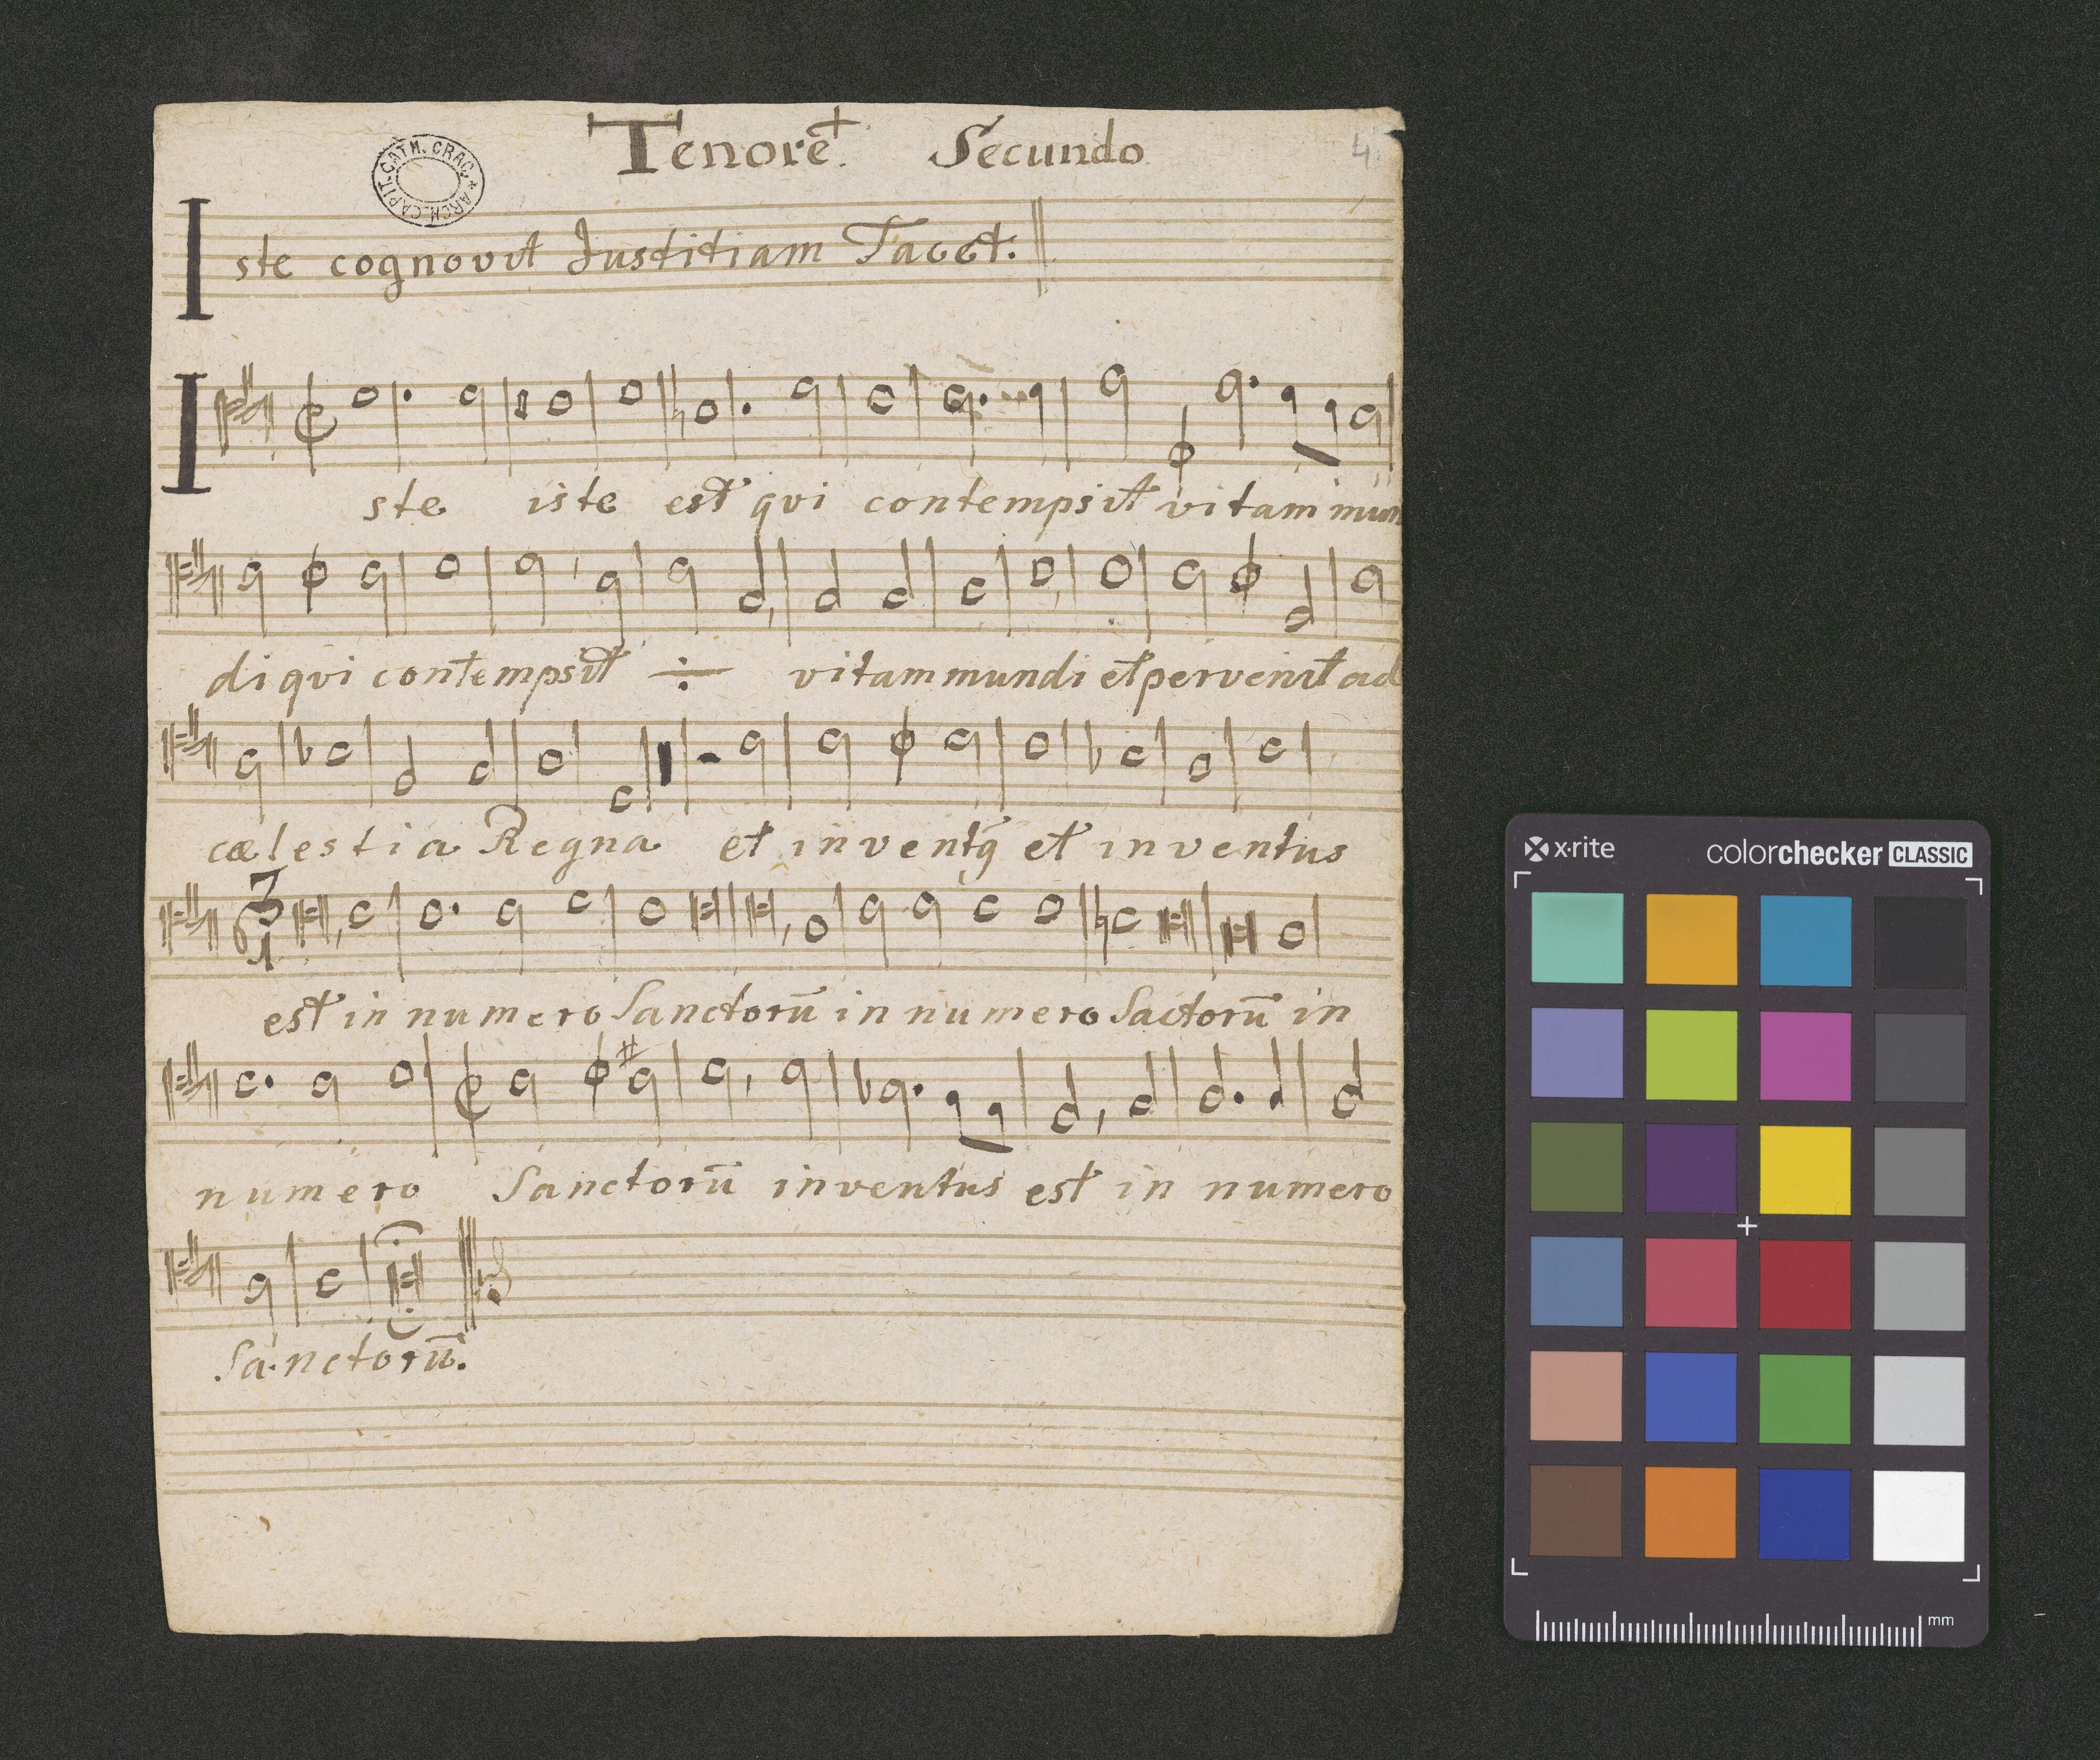 Tenore. Secundo
4.
ARCH. CAPIT. CATH. CRAC.
Iste cognovit Justitiam Tacet:
Iste iste est qvi contempsit vitam mun
di qvi contempsit ÷ vitam mundi et pervenit ad
cælestia Regna et inventꝗ et inventus
3
1
est in numero Sanctorū in numero Sactorū in
numero Sanctorū inventus est in numero
Sanctorū.
x·rite colorchecker CLASSIC
mm